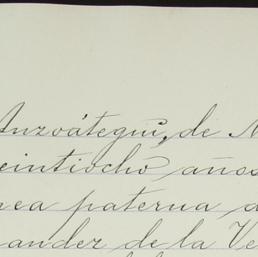 Anzoátegui, de
veintiocho años
nea paterna
andez de la Ve